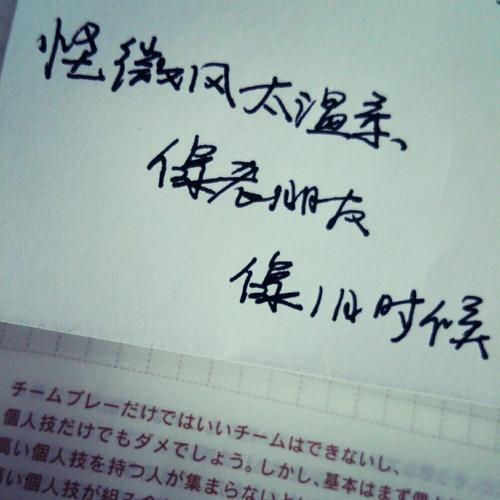 怪微风太温柔、
像老朋友
像旧时候
チームプレーだけではいいチームはできないし、
個人技だけでもダメでしょう。しかし、基本はまず個
高い個人技を持つ人が集まらない
高い個人技が組み合